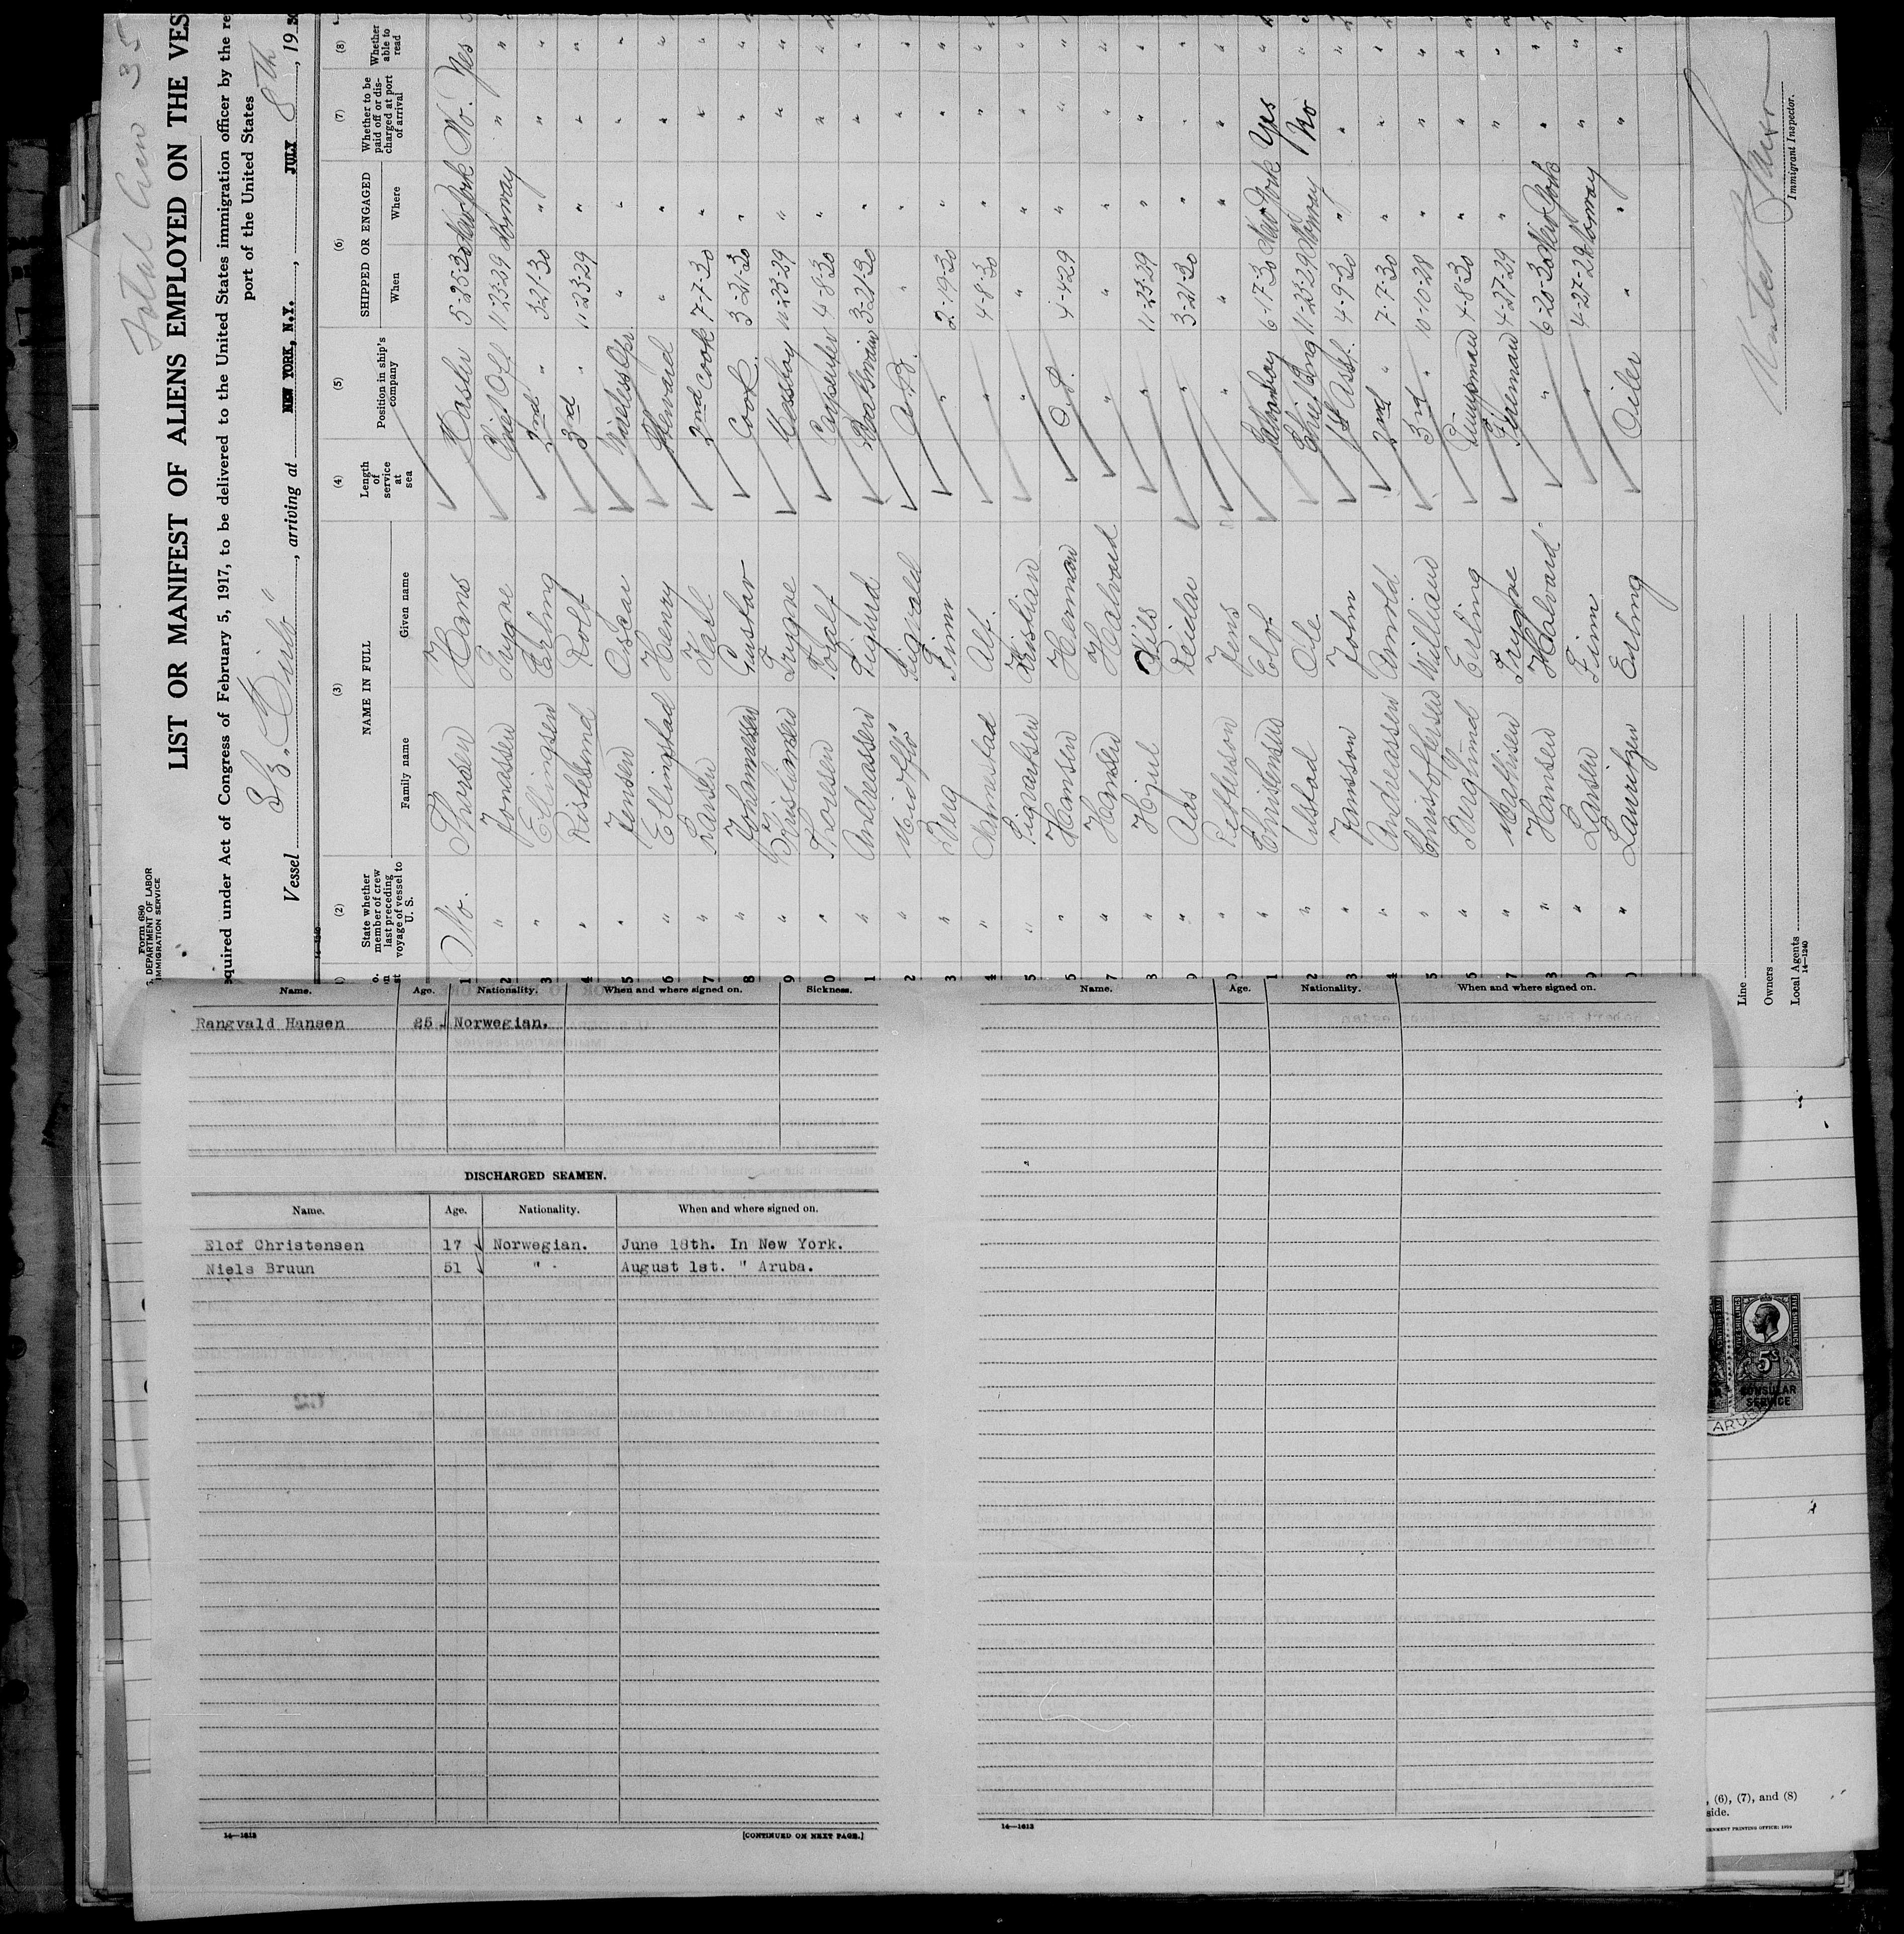 Total Crew 35
Form 680
DEPARTMENT OF LABOR
IMMIGRATION SERVICE
LIST OR MANIFEST OF ALIENS EMPLOYED ON THE VES
quired under Act of Congress of February 5, 1917, to be delivered to the United States immigration officer by the re
port of the United States
Vessel , arriving at NEW YORK, N.Y. , JULY 8th , 19 30
(2) (3) (4) (5) (6) (7) (8)
State whether member of crew last preceding voyage of vessel to U. S.
NAME IN FULL
Family name Given name
Length of service at sea
Position in ship's company
SHIPPED OR ENGAGED
When Where
Whether to be paid off or discharged at port of arrival
Whether able to read
1 No. Hans 5-25-30 New York No. Yes
2 " Jonassen Trygve Chief Off. 11-23-29 Norway " "
3 " Ellingsen Erling 2nd " 3-21-30 " " "
4 " Risland Rolf 3rd " 11-23-29 " " "
5 " Jensen Oscar Wireless Opr. " " " "
6 " Ellingstad Henry Steward " " " "
7 " Larsen Karl 2nd Cook 7-7-30 " " "
8 " Johannessen Gustav Cook 3-21-30 " " "
9 " Kristiansen Trygve Messboy 11-23-29 " " "
0 " Thorsen Toralf Carpenter 4-8-30 " " "
1 " Andreassen Sigurd Boatswain 3-21-30 " " "
2 " Sigvald A.B. " " " "
3 " Berg Finn " 2-19-30 " " "
4 " Alf. " 4-8-30 " " "
5 " Sigvartsen Kristian " " " " "
6 " Hansen Herman O.S. 4-4-29 " " "
7 " Hansen Halvard " " " " "
8 " Hjul Nils " 11-23-29 " " "
9 " Aas Reidar " 3-21-30 " " "
0 " Petterson Jens " " " "
1 " Christensen Elof 6-17-30 New York Yes "
2 " Ulstad Ole Chief Eng 11-23-29 Norway No "
3 " Jansson John 1st Asst. 4-9-30 " " "
4 " Andreassen Arnold 2nd " 7-7-30 " " "
5 " Christoffersen William 3rd " 10-10-28 " " "
6 " Berglund Erling Pumpman 4-8-30 " " "
7 " Mathisen Trygve Fireman 4-27-29 " " "
8 " Hansen Halvard " 6-20-30 New York " "
9 " Larsen Finn " 4-27-29 Norway " "
0 " Lauritzen Erling Oiler " " " "
Immigrant Inspector.
Line
Owners
Local Agents
14-1240
Name. Age. Nationality. When and where signed on. Sickness.
Rangvald Hansen 25 Norwegian.
DISCHARGED SEAMEN.
Name. Age. Nationality. When and where signed on.
Elof Christensen 17 Norwegian. June 18th. In New York.
Niels Bruun 51 " August 1st. " Aruba.
14—1613 [CONTINUED ON NEXT PAGE.]
Name. Age. Nationality. When and where signed on.
14—1613
FIVE SHILLINGS
5s
CONSULAR
SERVICE
ARUBA
, (6), (7), and (8)
side.